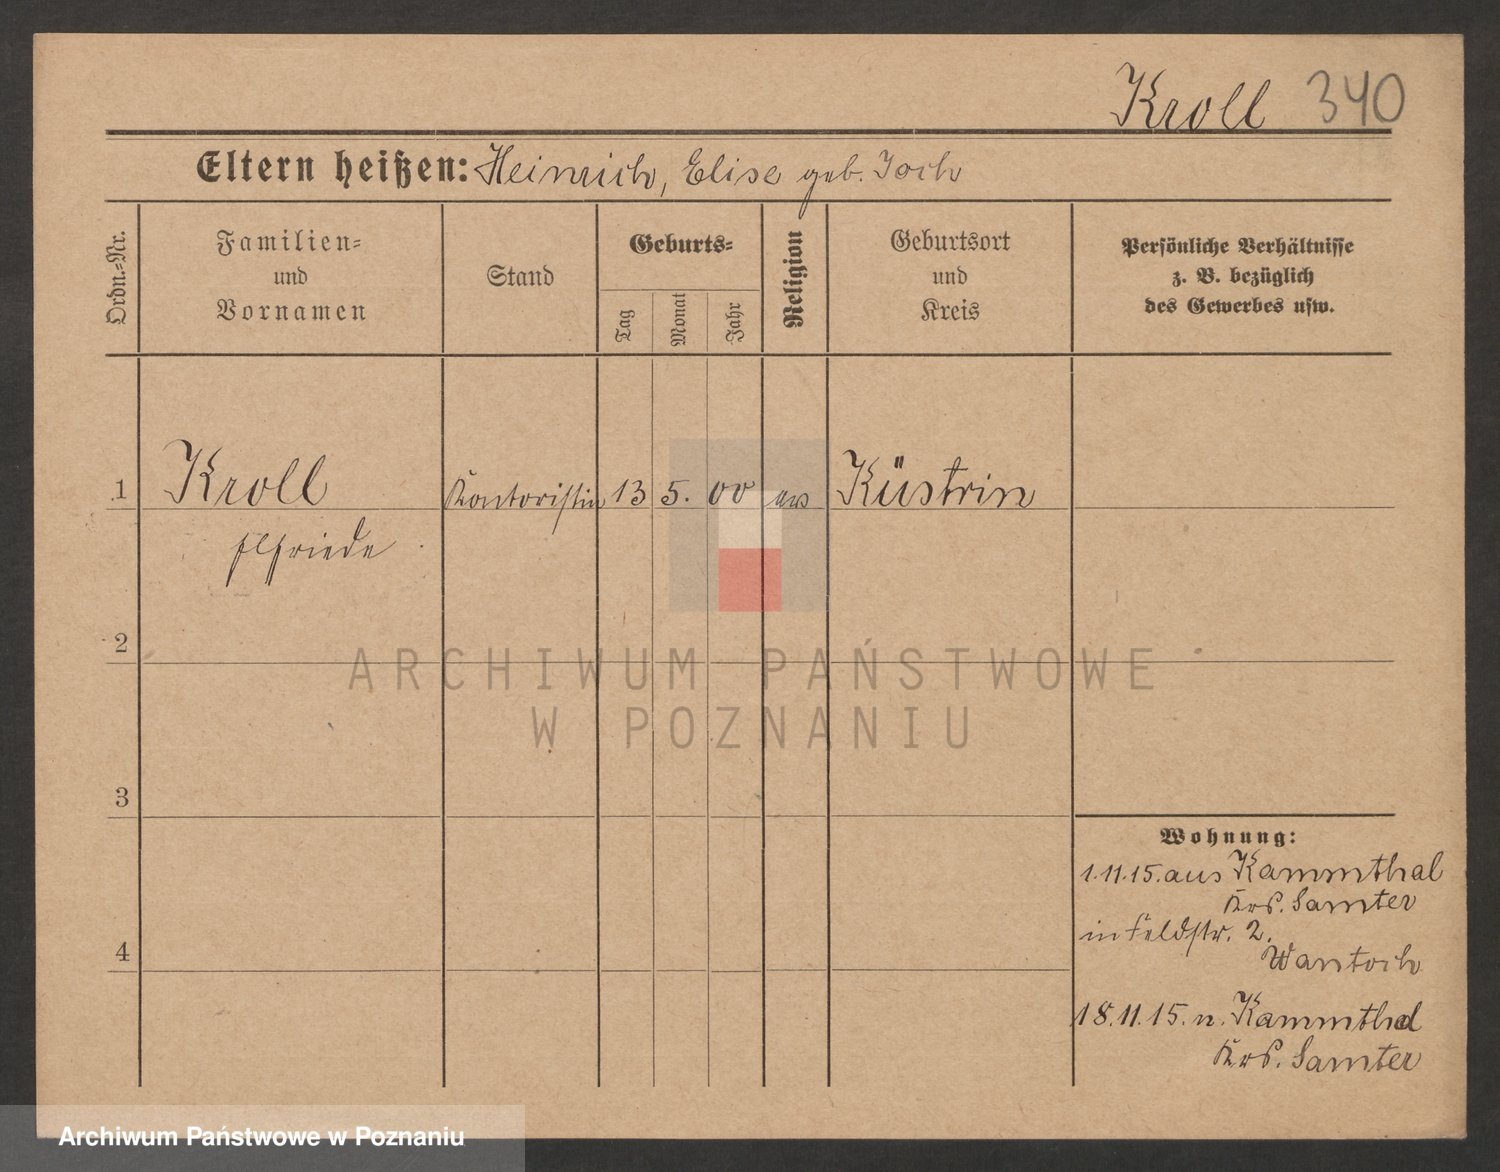 Kroll 340
Eltern heißen: Heinrich, Elise geb. Joch
Ordn.-Nr.
Familien-
und
Vornamen
Stand
Geburts-
Tag
Monat
Jahr
Religion
Geburtsort
und
Kreis
Persönliche Verhältnisse
z. B. bezüglich
des Gewerbes usw.
1 Kroll Kontoristin 13 5. 00 ev Küstrin
Elfriede
2
3
4
Wohnung:
1.11.15. aus Kammthal
Krs. Samter
in Feldstr. 2.
Wantoch
18.11.15. n. Kammthal
Krs. Samter
ARCHIWUM PAŃSTWOWE
W POZNANIU
Archiwum Państwowe w Poznaniu